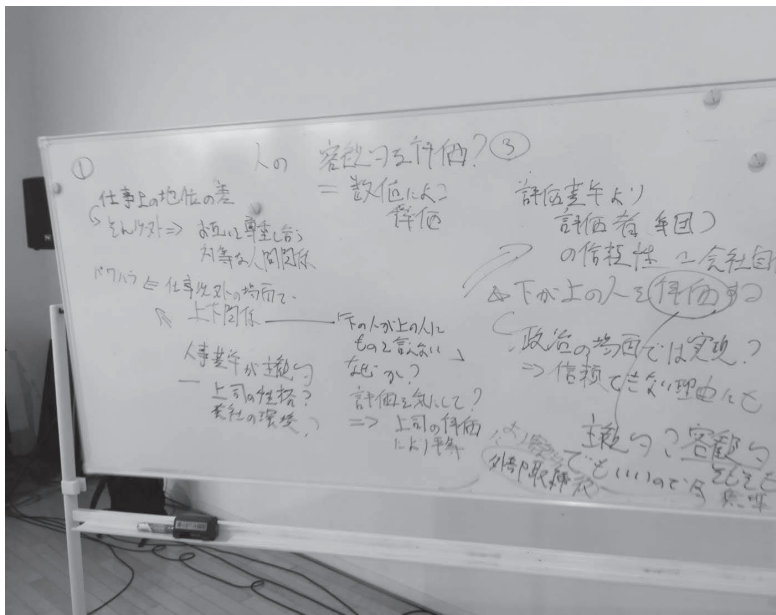 ①
人の 客観的な評価? ③
= 数値による
評価
仕事上の地位の差
それ以外⇒ お互いを尊重し合う
対等な人間関係
パワハラ ⇐ 仕事以外の場面で
上下関係
「下の人が上の人に
ものを言えない」
なぜか?
評価を気にして?
⇒ 上司の評価
により
人事基準が主観的
上司の性格?
会社の環境?
評価基準より
評価者集団
の信頼性 会社
下が上の人を評価
政治の場面では実現?
⇒ 信頼できない理由にも
主観的?客観的
でもいいのでは
そもそも
外部取締役